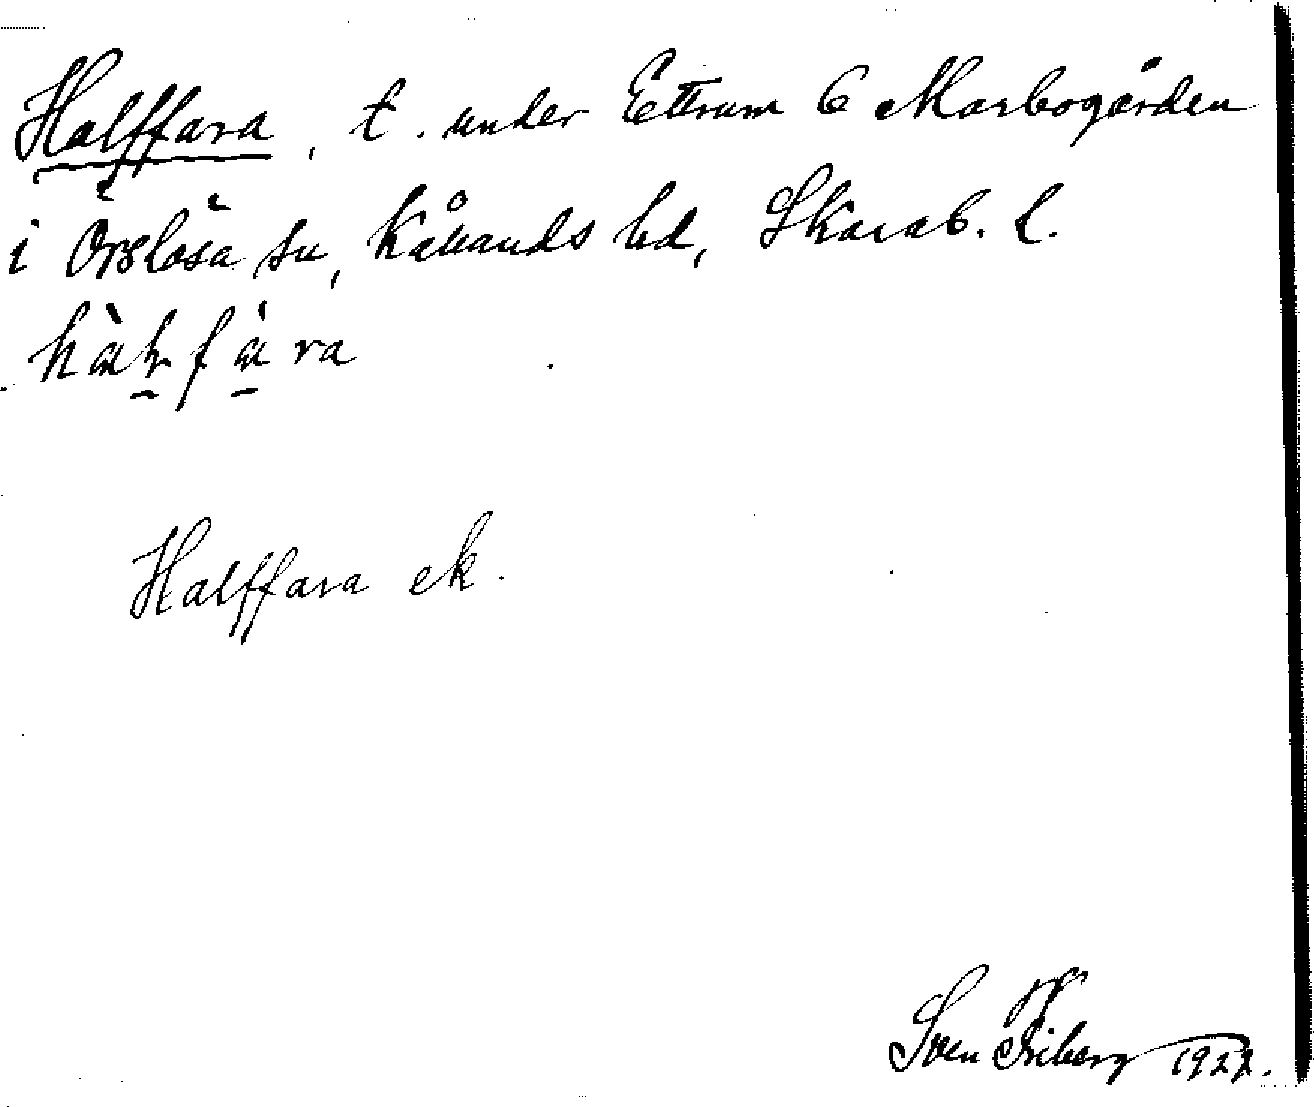 Halffara, t. under Ettrum 6 Marbogården
i Örslösa sn, Kållands hd, Skarab. l.
Halffara ek.
Sven Friberg